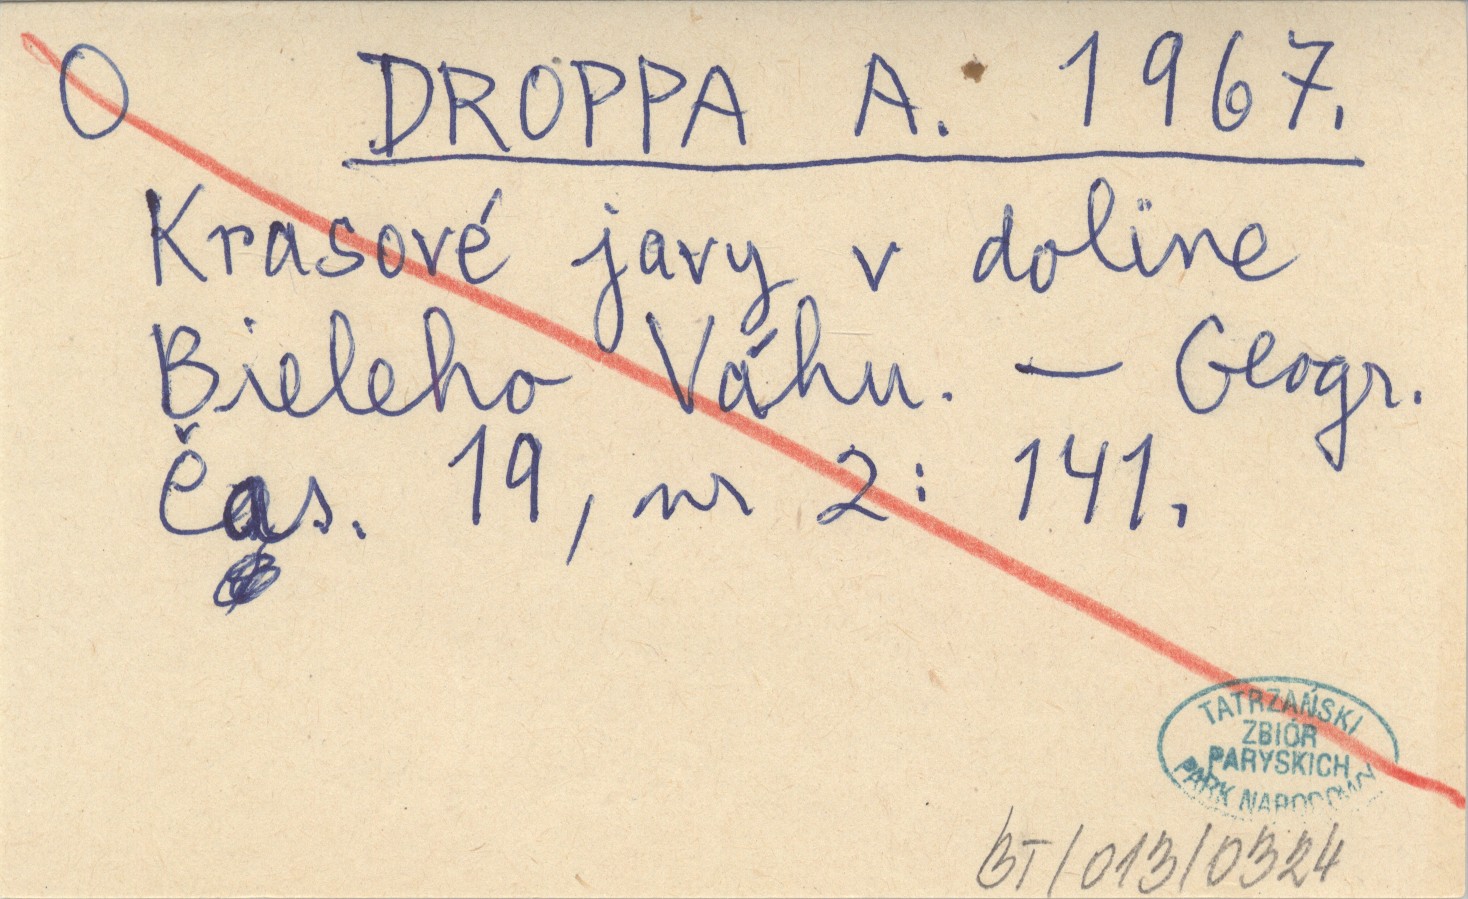 O DROPPA A. 1967.
Krasové javy v doline
Bieleho Váhu. — Geogr.
Čas. 19, nr 2: 141.
TATRZAŃSKI
ZBIÓR
PARYSKICH
PARK NARODOWY
BT/013/0324